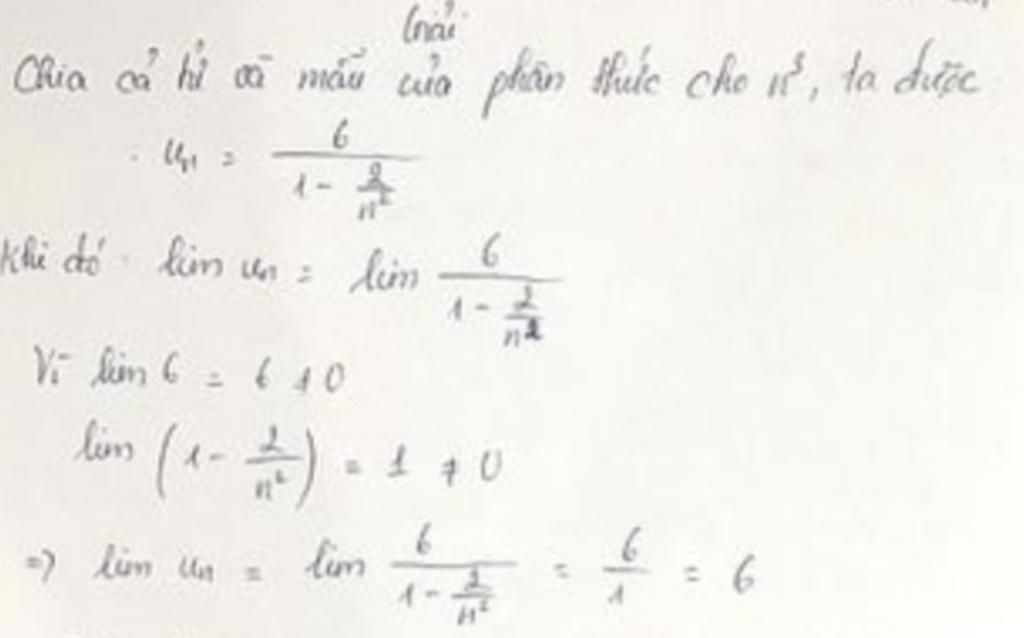 Giải
Chia cả tử và mẫu của phân thức cho n³, ta được
uₙ = 6 / (1 - 2/n²)
Khi đó lim uₙ = lim 6 / (1 - 2/n²)
Vì lim 6 = 6 ≠ 0
lim (1 - 2/n²) = 1 ≠ 0
=> lim uₙ = lim 6 / (1 - 2/n²) = 6/1 = 6